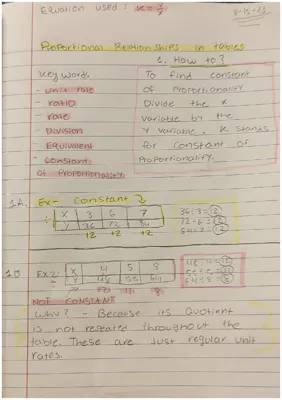 Equation used: K = y/x
Proportional Relationships in tables
1. How to?
Key words
- unit rate
- ratio
- rate
- Division
- Equivalent
- Constant
of Proportionality
To find constant
of Proportionality
Divide the x
variable by the
Y variable. K stands
for constant of
Proportionality.
1A. Ex- Constant
X 3 6 7
Y 36 72 84
36÷3=12
72÷6=12
84÷7=12
1B Ex 2: X 4 5 8
Y 48 55 64
48÷4=12
55÷5=11
64÷8=8
NOT CONSTANT
Why? - Because its Quotient
is not repeated throughout the
table. These are just regular unit
rates.